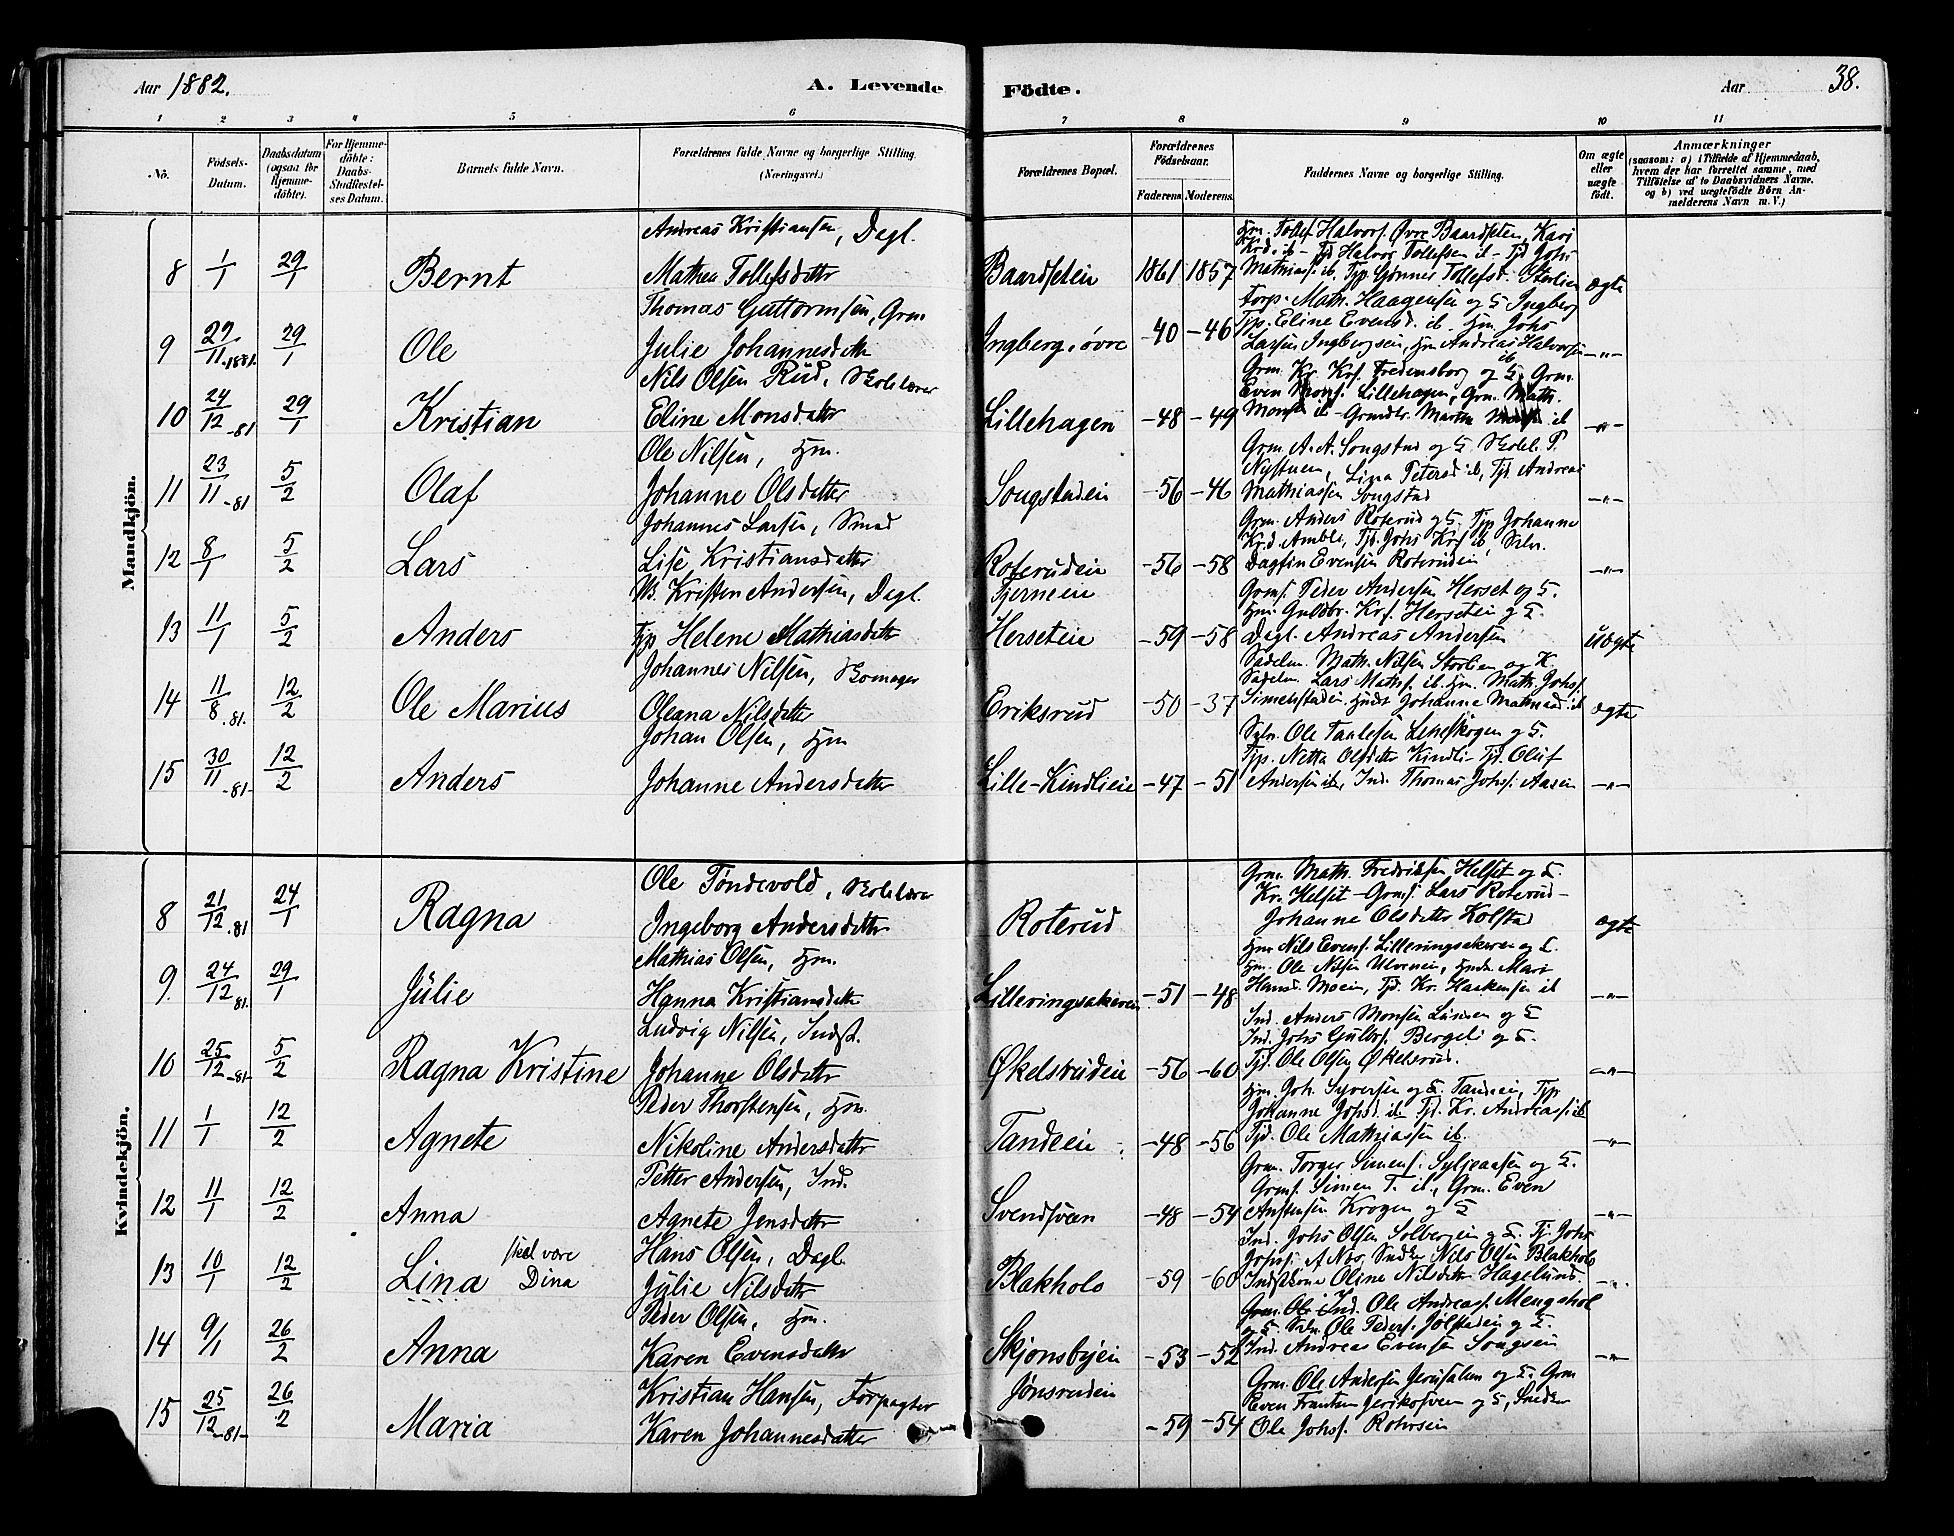 Aar 1882.
A. Levende Födte.
Aar
38.
1 2 3 4 5 6 7 8 9 10 11
No.
Födsels-Datum.
Daabsdatum (ogsaa for Hjemme-döbte).
For Hjemme-döbte: Daabs-Stadfæstel-ses Datum.
Barnets fulde Navn.
Forældrenes fulde Navne og borgerlige Stilling. (Næringsvei.)
Forældrenes Bopæl.
Forældrenes Födselsaar.
Faderens Moderens
Faddernes Navne og borgerlige Stilling.
Om ægte eller uægte födt.
Anmærkninger
(saasom: a) i Tilfælde af Hjemmedaab,
hvem der har forrettet samme, med
Tilföielse af to Daabsvidners Navne,
og b) ved uægtefödte Börn An-
melderens Navn m. V.)
Mandkjön.
8 1/1 29/1 Bernt
Andreas Kristiansen, Dagl.
Mathea Tollefsdatter
Baardseteie 1861 1857
Hm. Tollef Halvors. Øvre Baardseten, Kari
Krd. ib - Tjd Halvor Tollefsen ib - Tjd Johs
Mathias. ib. Tjp. Gønner Tollefsd. Storlien
ægte
9 27/11-1881. 29/1 Ole
Thomas Guttormsen, Grm
Julie Johannesdatter
Ingberg, øvre -40 -46
Forp. Math. Haagensen og H Ingberg
Tjp. Eline Evensd. ib. Hm. Johs
Larsen Ingbergseie, Hm Andreas Halvorsen ib
-"-
10 24/12-81 29/1 Kristian
Nils Olsen Rud, Skolelærer
Eline Monsdatter
Lillehagen -48 -49
Grm. Kr. Krs. Fredensborg og H, Grm.
Even Mons. Lillehagen, Grm. Math.
ib
-"-
11 23/11-81 5/2 Olaf
Ole Nilsen, Hm.
Johanne Olsdatter
Songstadeie -56 -46
Grm. A. A. Songstad og H Skolel. P.
Nystuen, Lina Petersd ib, Tjd Andreas
Mathiassen Songstad
-"-
12 8/1 5/2 Lars
Johannes Larsen, Smed
Lise Kristiansdatter
Roterudeie -56 -58
Grm. Anders Roterud og H. Tjp Johanne
Krd. Amble, Tjd. Johs Krs ib, Selv.
Dagfin Evensen Roterudeie
-"-
13 11/1 5/2 Anders
M. Kristen Andersen, Dagl.
Tjp Helene Mathiasdatter
Tjerneeie
Herseteie -59 -58
Grms. Peder Andersen Herset og H.
Hm. Guldbr. Krs. Herseteie og H.
Dagl. Andreas Andersen
Uægte
14 11/8-81. 12/2 Ole Marius
Johannes Nilsen, Skomager
Oleana Nilsdatter
Eriksrud -50 -37
Sadelm. Math. Nilsen Storlien og K.
Sadelm. Lars Maths. ib Hm. Math. Johs.
Simenstadeie Johanne ib
ægte
15 30/11-81- 12/2 Anders
Johan Olsen, Hm
Johanne Andersdatter
Lille-Kindlieie -47 -51
Selv. Ole Paulsen Leneskogen og H.
Tjp. Netta Olsdatter Kindli- Tjd. Oluf
Andersen ib, Ind. Thomas Johs. Aasen
-"-
Kvindekjön.
8 21/12-81 24/1 Ragna
Ole Tøndevold, Skolelærer
Ingeborg Andersdatter
Roterud
Grm. Math. Fredriksen Helset og H.
Kr. Helset - Grms. Lars Roterud -
Johanne Olsdatter Kolstad
ægte
9. 24/12 81. 29/1 Julie
Mathias Olsen, Hm.
Hanna Kristiansdatter
Lilleringsakeren -51 -48
Hm Nils Evens. Lilleringsakeren og H.
Hm. Ole Nilsen Ulveneie, Mari
Hansd. Moeie, Tjd. Kr. Haakensen ib
-"-
10 25/12-81- 5/2 Ragna Kristine
Ludvig Nilsen, Indst.
Johanne Olsdatter
Økelsrudeie -56 -60
Ind. Anders Monsen Lunden og H
Ind. Johs Gulbrs. Bergeli og H.
Tjd. Ole Olsen Økelsrud.
-"-
11 1/1 12/2 Agnete
Peder Thorstensen, Hm.
Nikoline Andersdatter
Tandeeie -48 -56
Hm. Joh. Syversen og H Tandeeie, Tjp
Johanne Johsd. ib Tjd. Kr. Andreass. ib
Tjd. Ole Mathiassen ib.
-"-
12 11/1 12/2 Anna
Petter Andersen, Ind.
Agnete Jensdatter
Svendsveen -48 -54
Grm. Torger Simens. Syljeaasen og H.
Grms. Simen T. ib., Grm. Even
Anstensen Krogen og H
-"-
13 10/1 12/2 Lina skal være Dina
Hans Olsen, Dagl.
Julie Nilsdatter
Blakholo -59 -60
Ind. Johs Olsen Solbergeie og H. Tj. Johs
Nils Olsen Blakholo
Indstkone Oline Nilsdatter Hagelund.
-"-
14 9/1 26/2 Anna
Peder Olsen, Hm.
Karen Evensdatter
Skjønsbyeie -53 -52
Ind. Ole Andreas. Mengshol
og H. Selv. Ole Peders. Jølstadeie og H.
Ind. Andreas Evensen Songveie
-"-
15 25/12-81- 26/2 Maria
Kristian Hansen, Forpagter
Karen Johannesdatter
Jønsrudeie -59 -54
Grm. Ole Andersen Jerusalem og H, Grm
Even Frantsen Jerikosveen og H, Snedker
Ole Johs. Rohrseie